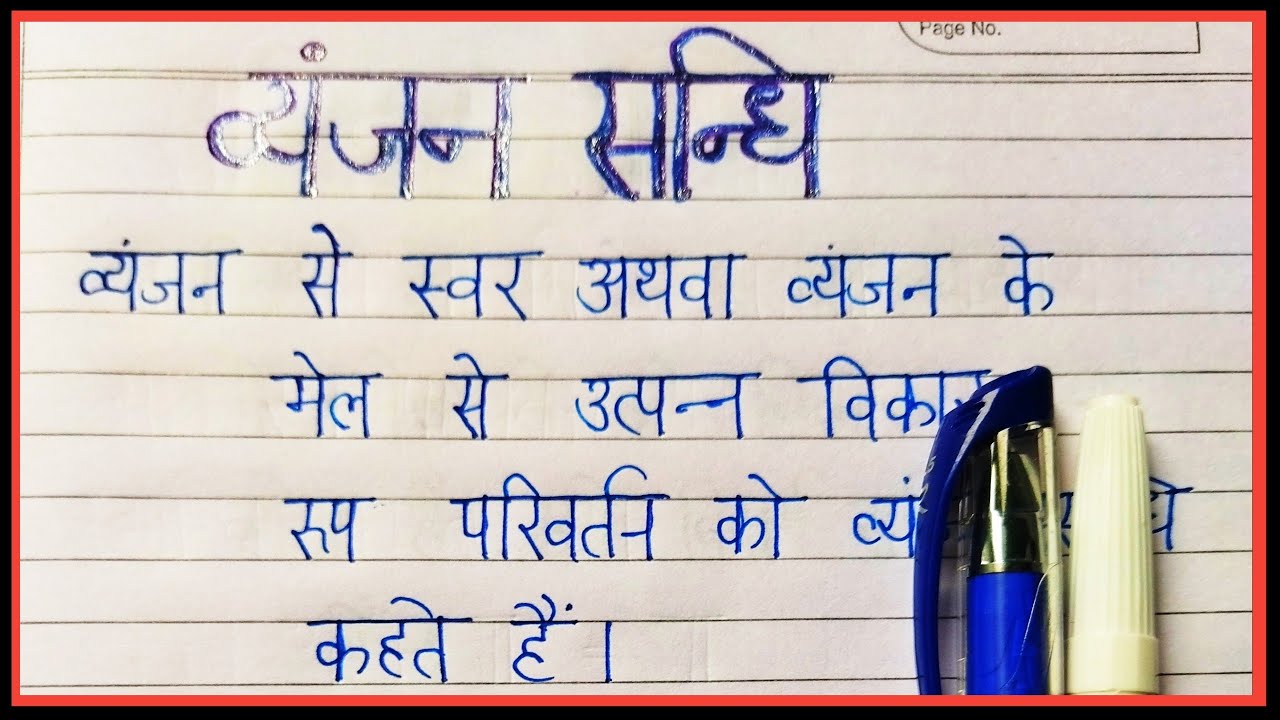 Page No.
व्यंजन सन्धि
व्यंजन से स्वर अथवा व्यंजन के
मेल से उत्पन्न
रुप परिवर्तन को
कहते हैं।